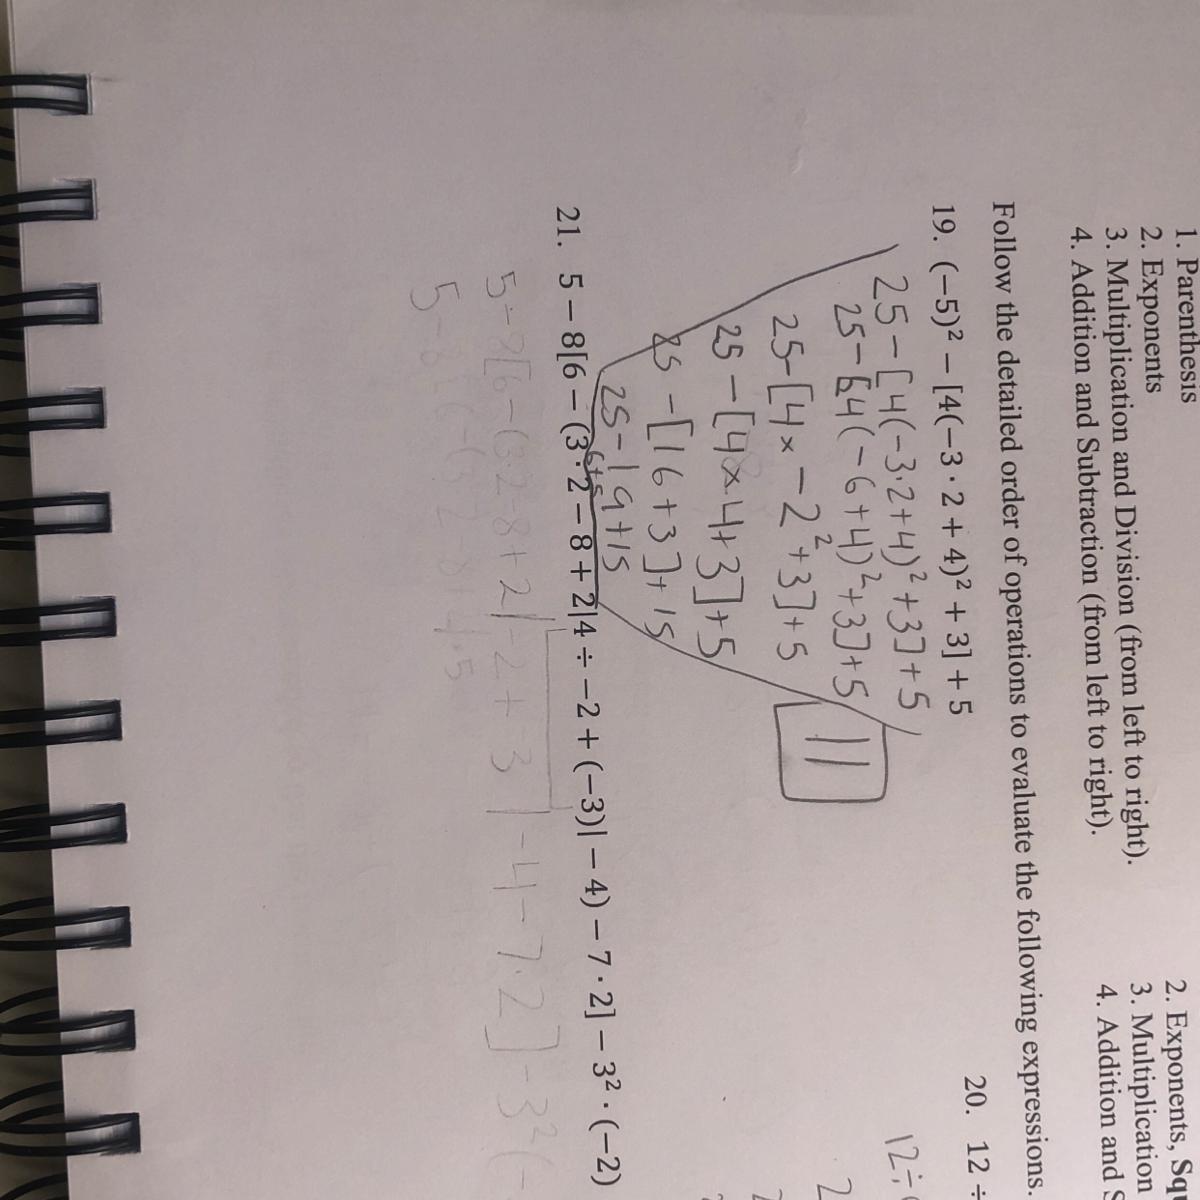 1. Parenthesis
2. Exponents
3. Multiplication and Division (from left to right).
4. Addition and Subtraction (from left to right).
2. Exponents, Sq
3. Multiplication
4. Addition and S
Follow the detailed order of operations to evaluate the following expressions.
19. (−5)² − [4(−3 · 2 + 4)² + 3] + 5
25 − [4(−3·2+4)²+3]+5
25 − [4(−6+4)²+3]+5
25-[4× −2²+3]+5
25 − [4×4+3]+5
25 − [16+3]+15
25-19+15
6+5
11
20. 12 ÷
12÷
2
2
21. 5 − 8[6 − (3 · 2 − 8 + 2|4 ÷ −2 + (−3)| − 4) − 7 · 2] − 3² · (−2)
5-8[6-(3·2-8+2|-2+-3|-4-7·2]-3²(-
5-8